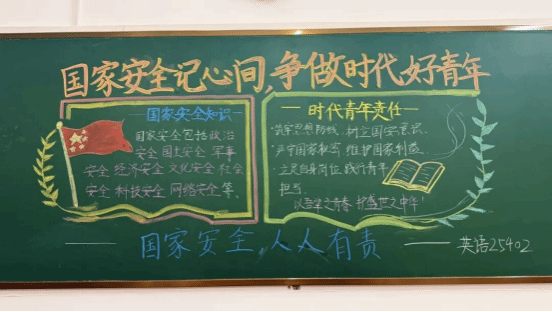 国家安全记心间,争做时代好青年
国家安全知识
国家安全包括政治
安全 国土安全 军事
安全 经济安全 文化安全 社会
安全 科技安全 网络安全 等。
时代青年责任
·筑牢思想防线,树立国安意识.
·严守国家秘密 维护国家利益
·立足自身岗位 践行青年
担当.
以吾辈之青春 护盛世之中华!
国家安全,人人有责
英语25402